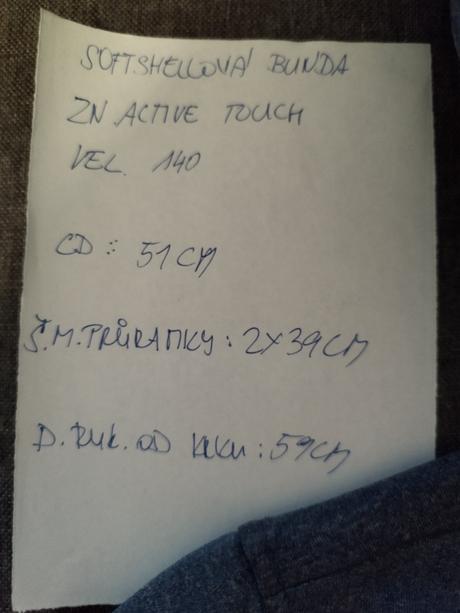 SOFTSHELLOVÁ BUNDA
ZN ACTIVE TOUCH
VEL. 140
CD: 51CM
Š.M.PRŮRAMKY: 2X39CM
D. RUK. OD KRKU: 59CM